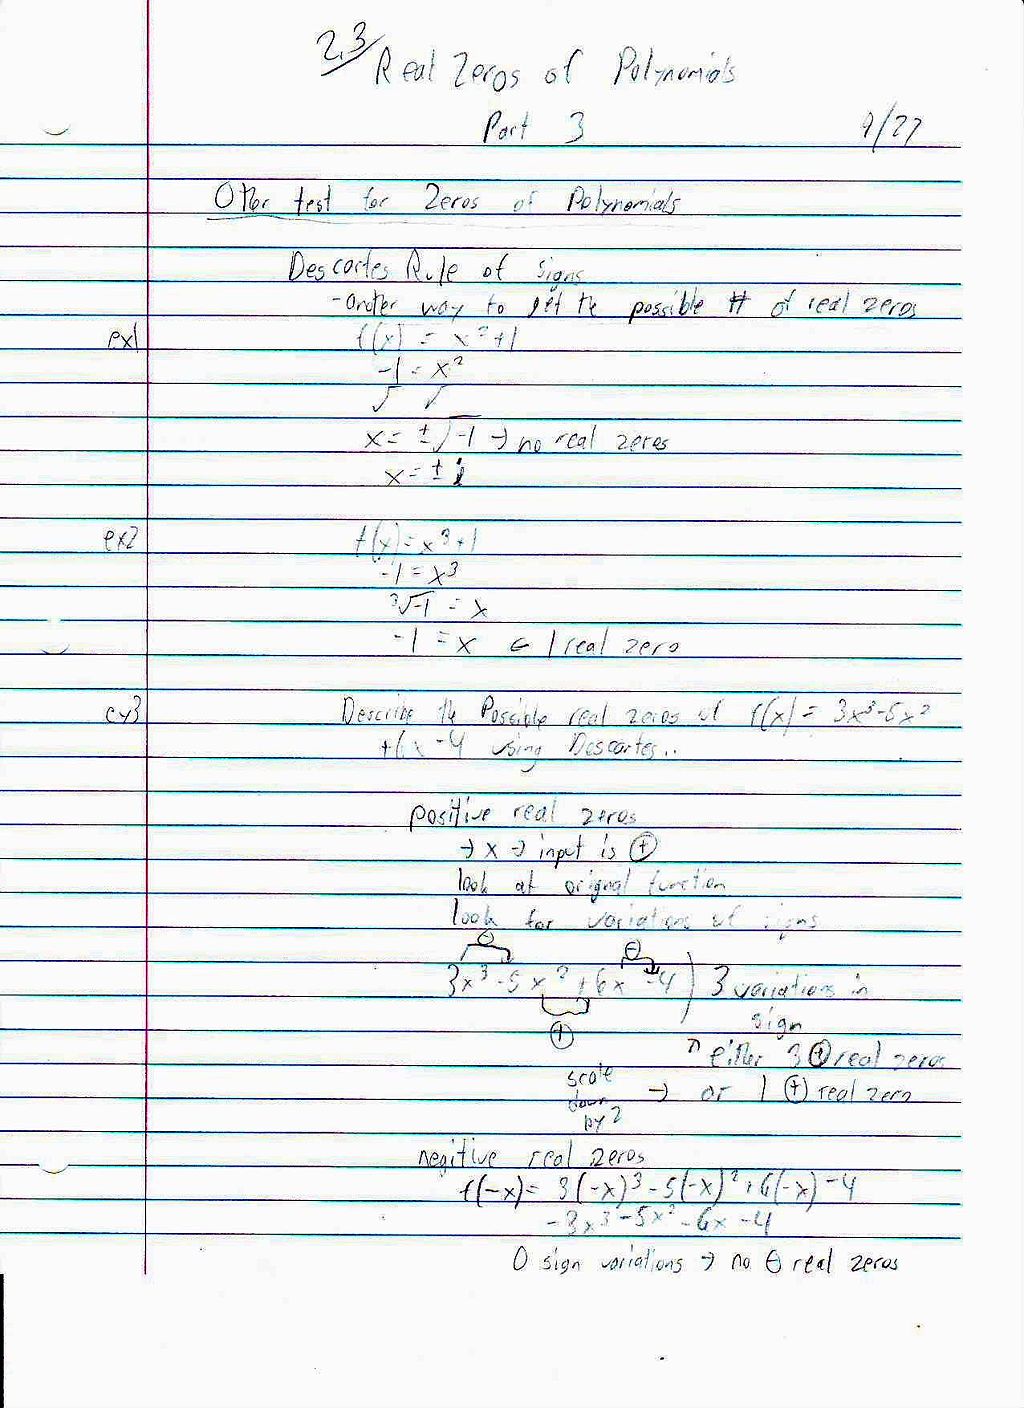 2.3 Real Zeros of Polynomials
Part 3 9/27
Other test for Zeros of Polynomials
Descartes Rule of signs
- another way to get the possible # of real zeros
ex1 f(x) = x²+1
-1 = x²
√ √
x = ±√-1 → no real zeros
x = ± i
ex2 f(x) = x³+1
-1 = x³
³√-1 = x
-1 = x ← 1 real zero
ex3 Describe the Possible real zeros of f(x) = 3x³-5x²
+6x-4 using Descartes..
positive real zeros
→ x → input is ⊕
look at original function
look for variations of signs
⊖ ⊖
3x³-5x²+6x-4) 3 variations in
sign
⊕
either 3 ⊕ real zeros
scale
down → or 1 ⊕ real zero
by 2
negitive real zeros
f(-x) = 3(-x)³-5(-x)²+6(-x)-4
-3x³-5x²-6x-4
0 sign variations → no ⊖ real zeros